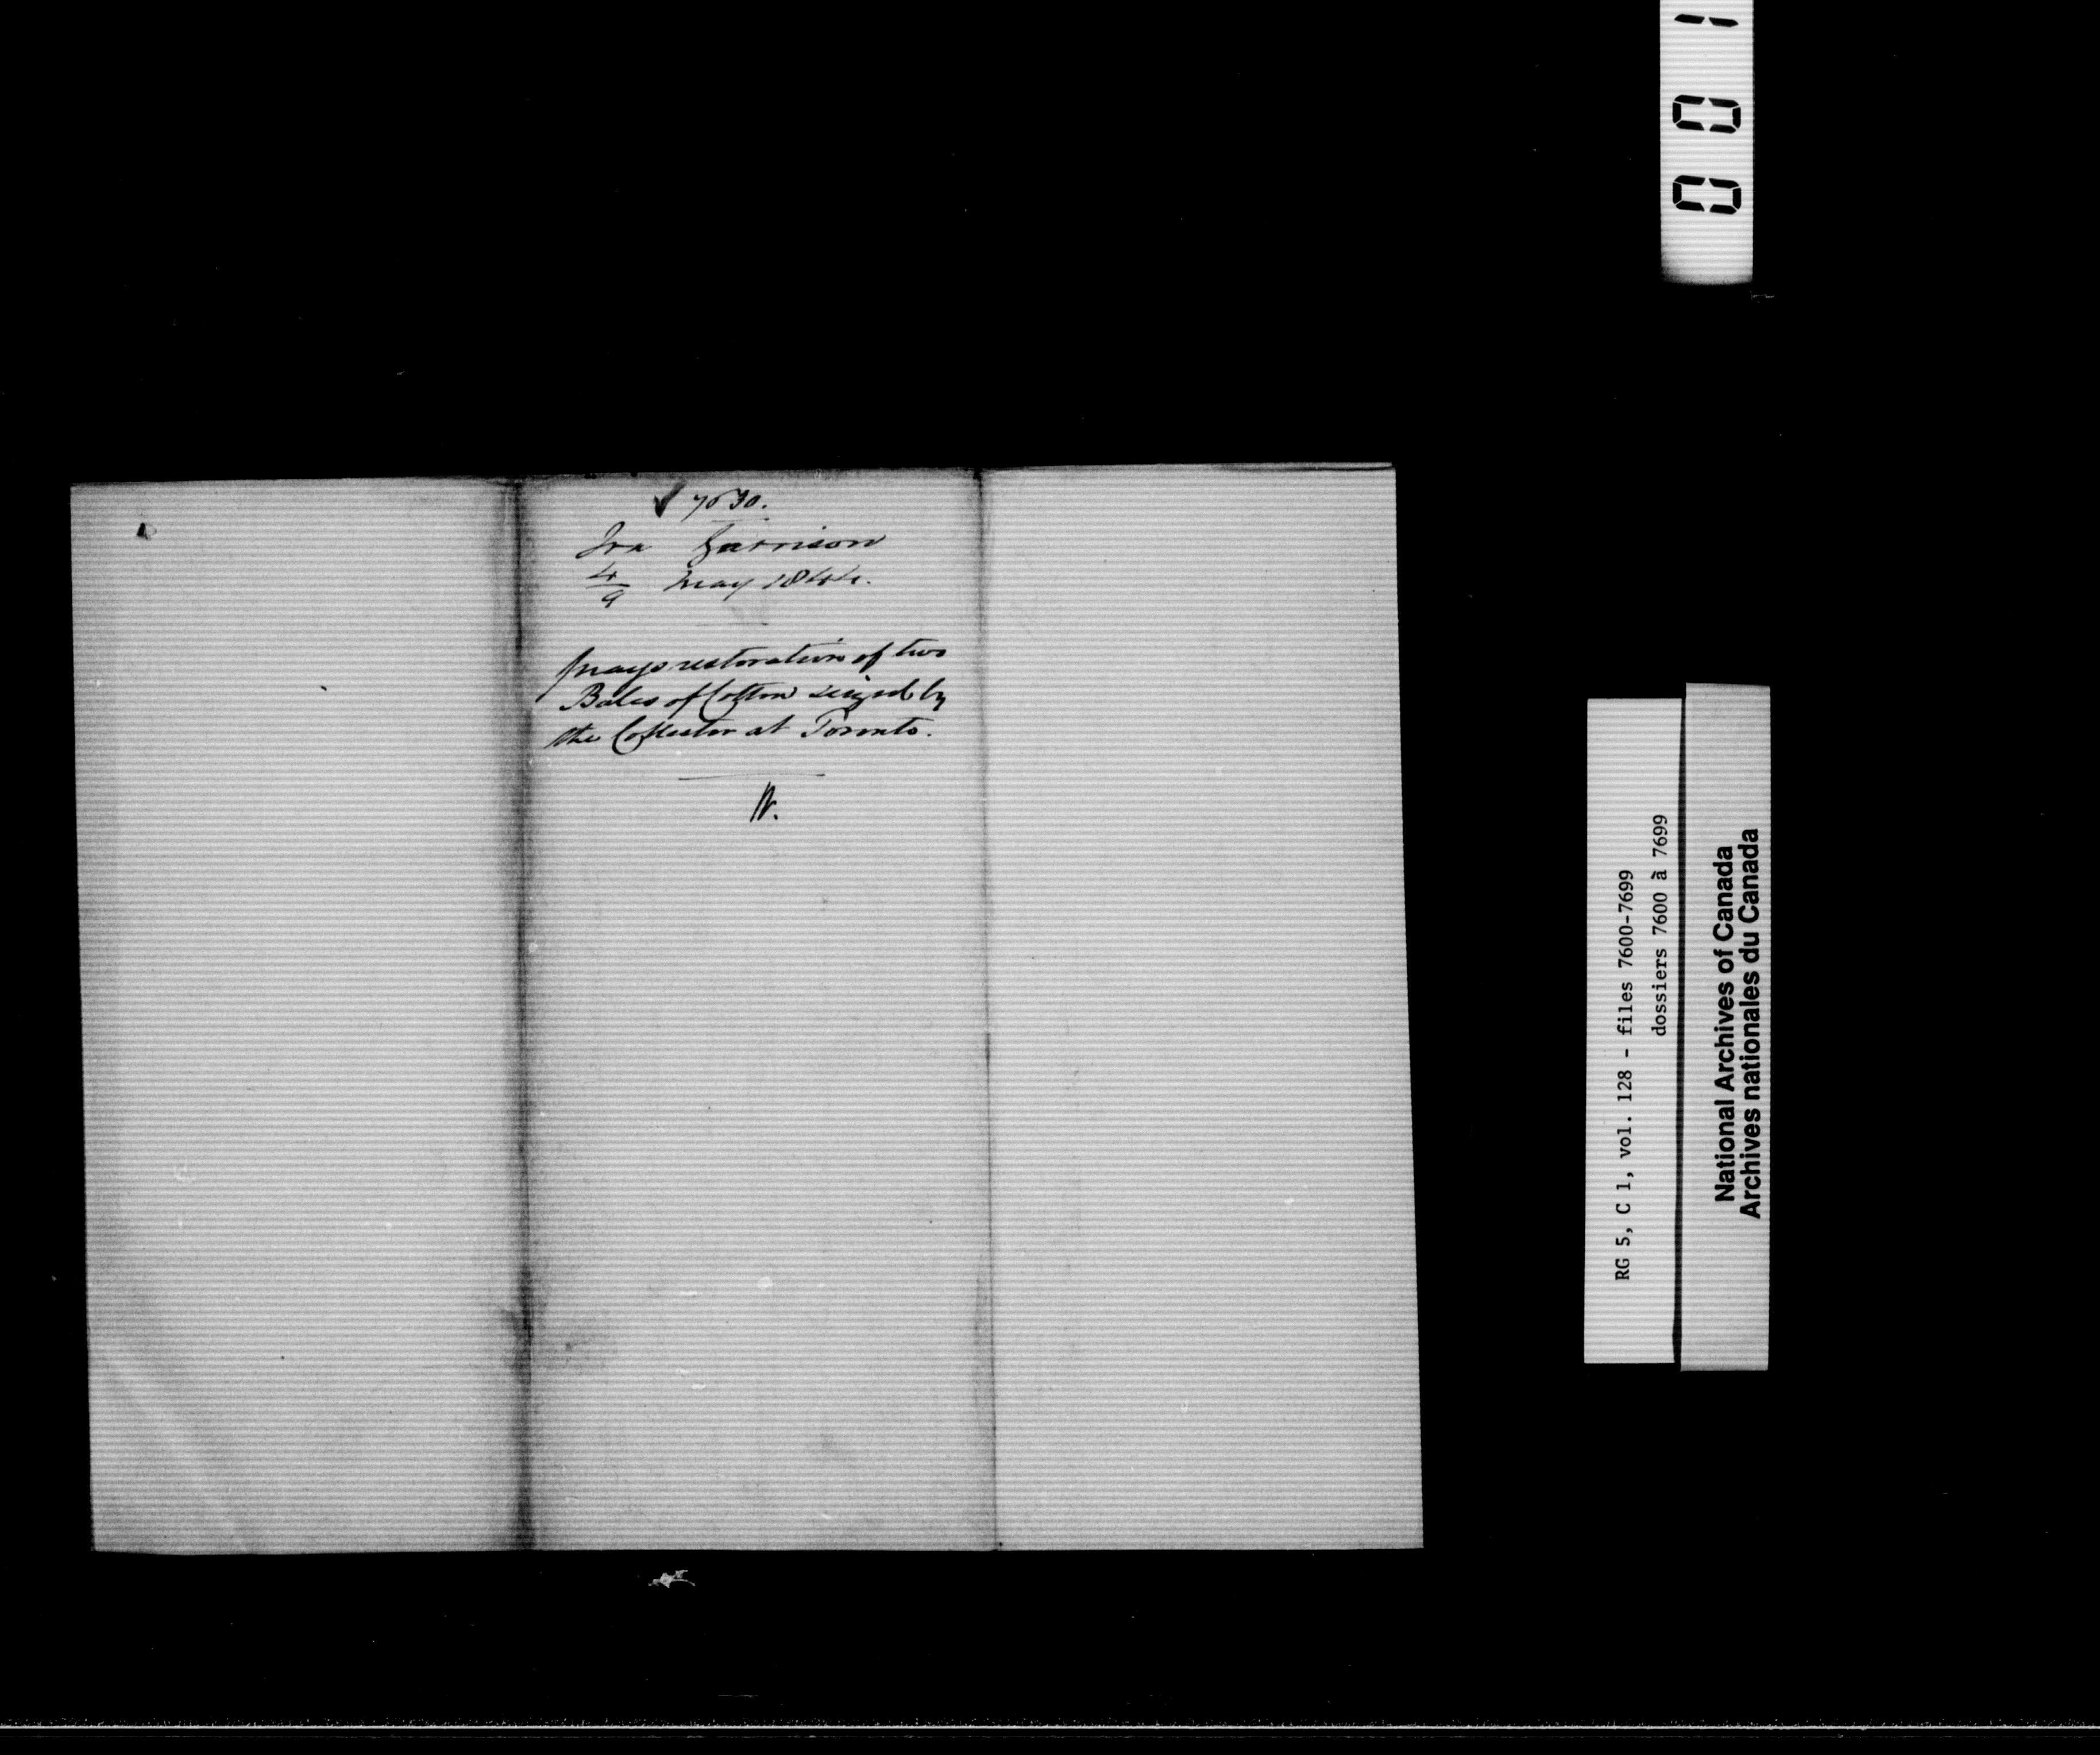 ✓ 7630.
Ira Garrison
4/9 May 1844.
prays restoration of two
Bales of Cotton seized by
the Collector at Toronto.
001
RG 5, C 1, vol. 128 - files 7600-7699
dossiers 7600 à 7699
National Archives of Canada
Archives nationales du Canada